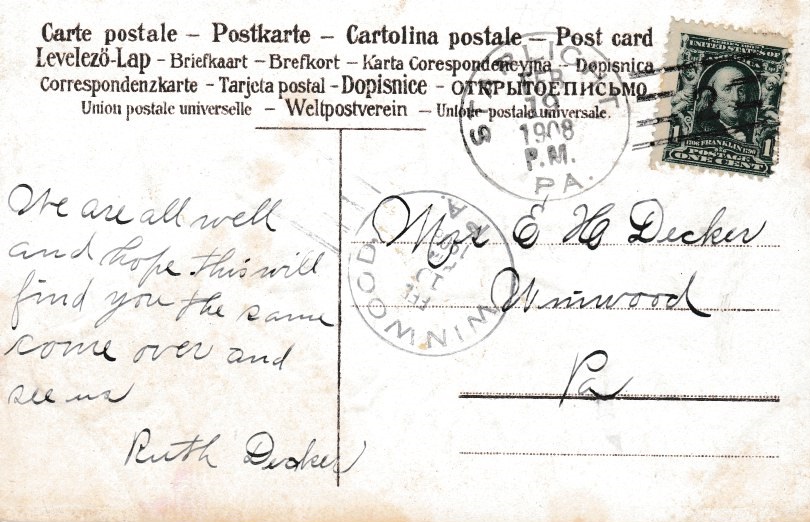 Carte postale – Postkarte – Cartolina postale – Post card
Levelező-Lap – Briefkaart – Brefkort – Karta Corespondencyjna – Dopisnica
Correspondenzkarte – Tarjeta postal – Dopisnice – ОТКРЫТОЕПИСЬМО
Union postale universelle – Weltpostverein – Unione postale universale.
STARLIGHT
FEB
19
1908
P.M.
PA.
UNITED STATES OF
FRANKLIN
POSTAGE
1 ONE CENT 1
WINWOOD
PA.
We are all well
and hope this will
find you the same
come over and
see us
Ruth Decker
Mrs E H Decker
Winwood
Pa